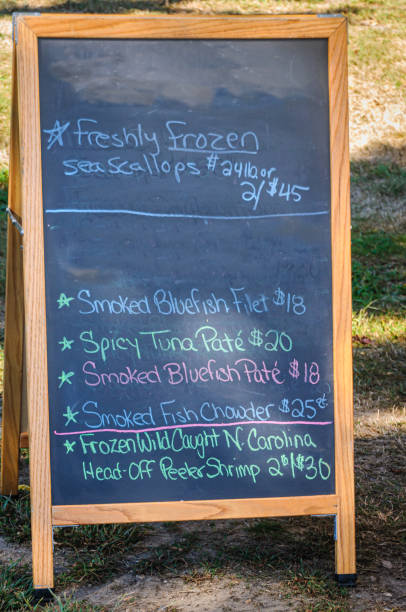 ☆ Freshly Frozen
sea scallops $24 lb or
2/$45
* Smoked Bluefish Filet $18
* Spicy Tuna Paté $20
* Smoked Bluefish Paté $18
* Smoked Fish Chowder $25 qt.
* Frozen Wild Caught N. Carolina
Head-Off Peeler Shrimp 2 lb/$30